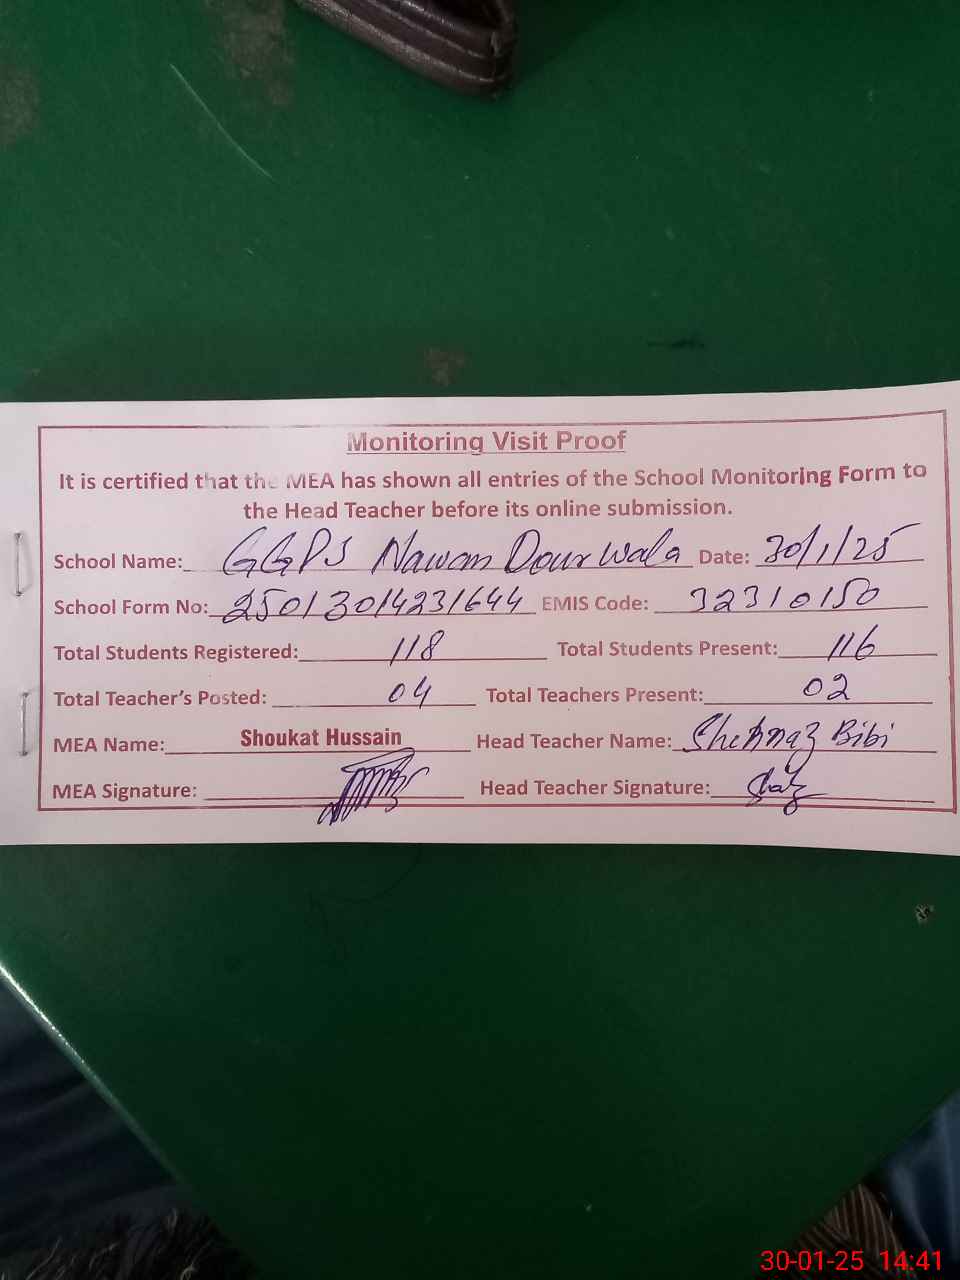 Monitoring Visit Proof
It is certified that the MEA has shown all entries of the School Monitoring Form to
the Head Teacher before its online submission.
School Name: GGPS Nawan Dour Wala Date: 30/1/25
School Form No: 25013014231644 EMIS Code: 32310150
Total Students Registered: 118 Total Students Present: 116
Total Teacher's Posted: 04 Total Teachers Present: 02
MEA Name: Shoukat Hussain Head Teacher Name: Shehnaz Bibi
MEA Signature: Head Teacher Signature:
30-01-25 14:41